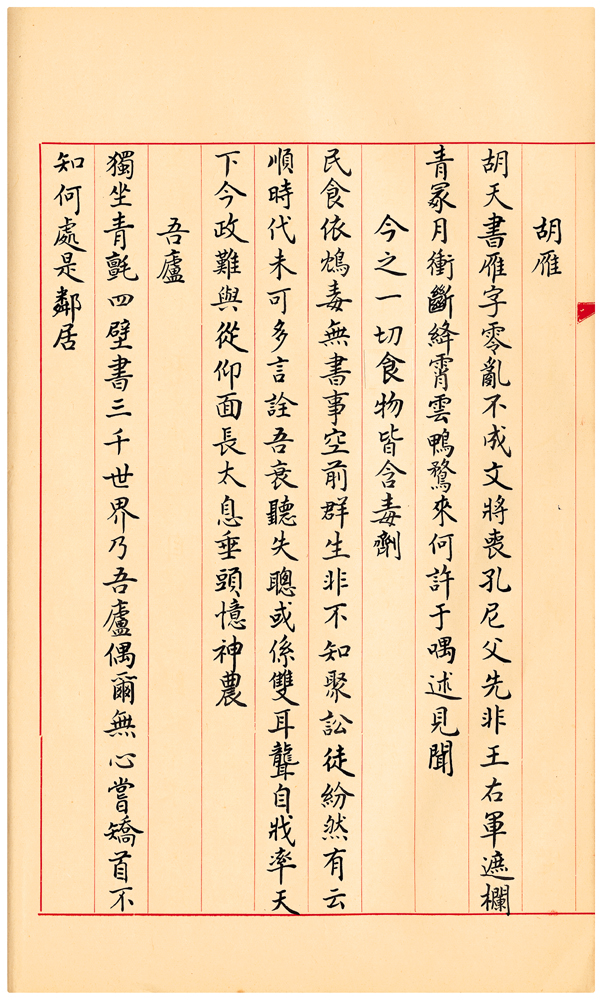 胡雁
胡天書雁字零亂不成文將喪孔尼父先非王右軍遮欄
青冢月衝斷絳霄雲鴨鶩來何許于喁述見聞
今之一切食物皆含毒劑
民食依鴆毒無書事空前群生非不知聚訟徒紛然有云
順時代未可多言詮吾衰聽失聰或係雙耳聾自戕率天
下今政難與從仰面長太息垂頭憶神農
吾廬
獨坐青氈四壁書三千世界乃吾廬偶爾無心嘗矯首不
知何處是鄰居